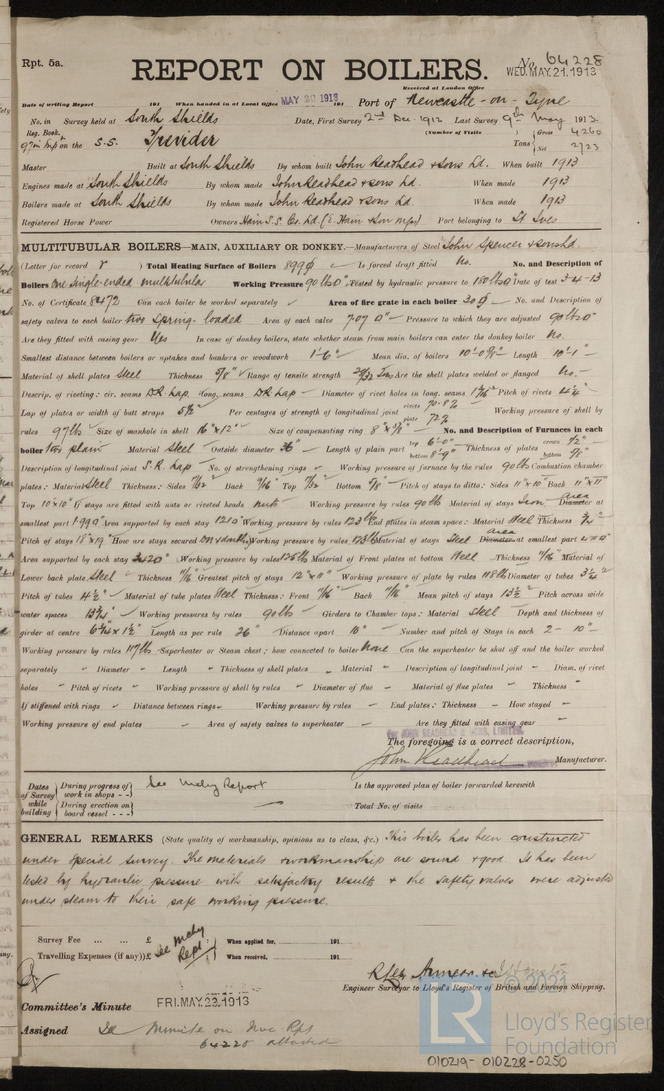 Rpt. 5a.
No. 64228
REPORT ON BOILERS.
Received at London Office WED. MAY. 21. 1913
Date of writing Report 191 When handed in at Local Office MAY 20 1913 191 Port of Newcastle-on-Tyne
No. in Survey held at South Shields Date, First Survey 2nd Dec. 1912 Last Survey 9th May 1913
Reg. Book. (Number of Visits
on the S.S. Trevider Tons { Gross 4260 Net 2723
Master Built at South Shields By whom built John Readhead & Sons Ld. When built 1913
Engines made at South Shields By whom made John Readhead & Sons Ld. When made 1913
Boilers made at South Shields By whom made John Readhead & Sons Ld. When made 1913
Registered Horse Power Owners Hain S.S. Co. Ld. (E. Hain & Son Mgrs) Port belonging to St Ives
MULTITUBULAR BOILERS—MAIN, AUXILIARY OR DONKEY.—Manufacturers of Steel John Spencer & Sons Ld.
(Letter for record r ) Total Heating Surface of Boilers 899 Is forced draft fitted No. No. and Description of
Boilers One Single-ended multitubular Working Pressure 90 lbs Tested by hydraulic pressure to 180 lbs Date of test 3-4-13
No. of Certificate 8472 Can each boiler be worked separately Area of fire grate in each boiler 30 No. and Description of
safety valves to each boiler two Spring-loaded Area of each valve 7.07 Pressure to which they are adjusted 90 lbs
Are they fitted with easing gear Yes In case of donkey boilers, state whether steam from main boilers can enter the donkey boiler No.
Smallest distance between boilers or uptakes and bunkers or woodwork 1'-6" Mean dia. of boilers Length 10'-1"
Material of shell plates Steel Thickness 5/8" Range of tensile strength Are the shell plates welded or flanged No.
Descrip. of riveting: cir. seams D.R. Lap. long. seams D.R. Lap Diameter of rivet holes in long. seams Pitch of rivets
Lap of plates or width of butt straps Per centages of strength of longitudinal joint rivets 70.8% plate 72% Working pressure of shell by
rules 97 lbs Size of manhole in shell 16" x 12" Size of compensating ring No. and Description of Furnaces in each
boiler two plain Material Steel Outside diameter 36" Length of plain part top 6'-0" bottom 8'-9" Thickness of plates crown 1/2" bottom
Description of longitudinal joint S.R. Lap No. of strengthening rings Working pressure of furnace by the rules 90 lbs Combustion chamber
plates: Material Steel Thickness: Sides Back Top Bottom Pitch of stays to ditto: Sides 11" x 10" Back 11" x 11"
Top 10" x 10" If stays are fitted with nuts or riveted heads nuts Working pressure by rules 90 lb Material of stays Iron Area Diameter at
smallest part 1.999 Area supported by each stay 121 Working pressure by rules 123 lbs End plates in steam space: Material Steel Thickness
Pitch of stays 18" x 19" How are stays secured Working pressure by rules Material of stays Steel Area Diameter at smallest part
Area supported by each stay 342 Working pressure by rules 125 lbs Material of Front plates at bottom Steel Thickness 11/16" Material of
Lower back plate Steel Thickness 11/16" Greatest pitch of stays 12" x 11" Working pressure of plate by rules 118 lbs Diameter of tubes
Pitch of tubes 4 1/2" Material of tube plates Steel Thickness: Front Back Mean pitch of stays 13 1/2" Pitch across wide
water spaces Working pressures by rules 90 lb Girders to Chamber tops: Material Steel Depth and thickness of
girder at centre Length as per rule 26" Distance apart 10" Number and pitch of Stays in each 2 - 10"
Working pressure by rules 117 lb Superheater or Steam chest; how connected to boiler None Can the superheater be shut off and the boiler worked
separately Diameter Length Thickness of shell plates Material Description of longitudinal joint Diam. of rivet
holes Pitch of rivets Working pressure of shell by rules Diameter of flue Material of flue plates Thickness
If stiffened with rings Distance between rings Working pressure by rules End plates: Thickness How stayed
Working pressure of end plates Area of safety valves to superheater Are they fitted with easing gear
For JOHN READHEAD & SONS, LIMITED.
The foregoing is a correct description,
John Readhead Manufacturer.
Dates of Survey while building { During progress of work in shops - - See Mchy Report Is the approved plan of boiler forwarded herewith
{ During erection on board vessel - - - Total No. of visits
GENERAL REMARKS (State quality of workmanship, opinions as to class, &c.) This boiler has been constructed
under special survey. The materials & workmanship are sound & good. It has been
tested by hydraulic pressure with satisfactory results & the safety valves were adjusted
under steam to their safe working pressure.
Survey Fee ... ... £ See Mchy Rept. When applied for, 191
Travelling Expenses (if any) £ When received, 191
Engineer Surveyor to Lloyd's Register of British and Foreign Shipping.
Committee's Minute FRI. MAY. 23. 1913
Assigned See Minute on Nwc Rpt
64228 attached
© 2021
LR
Lloyd's Register
Foundation
010219-010228-0250